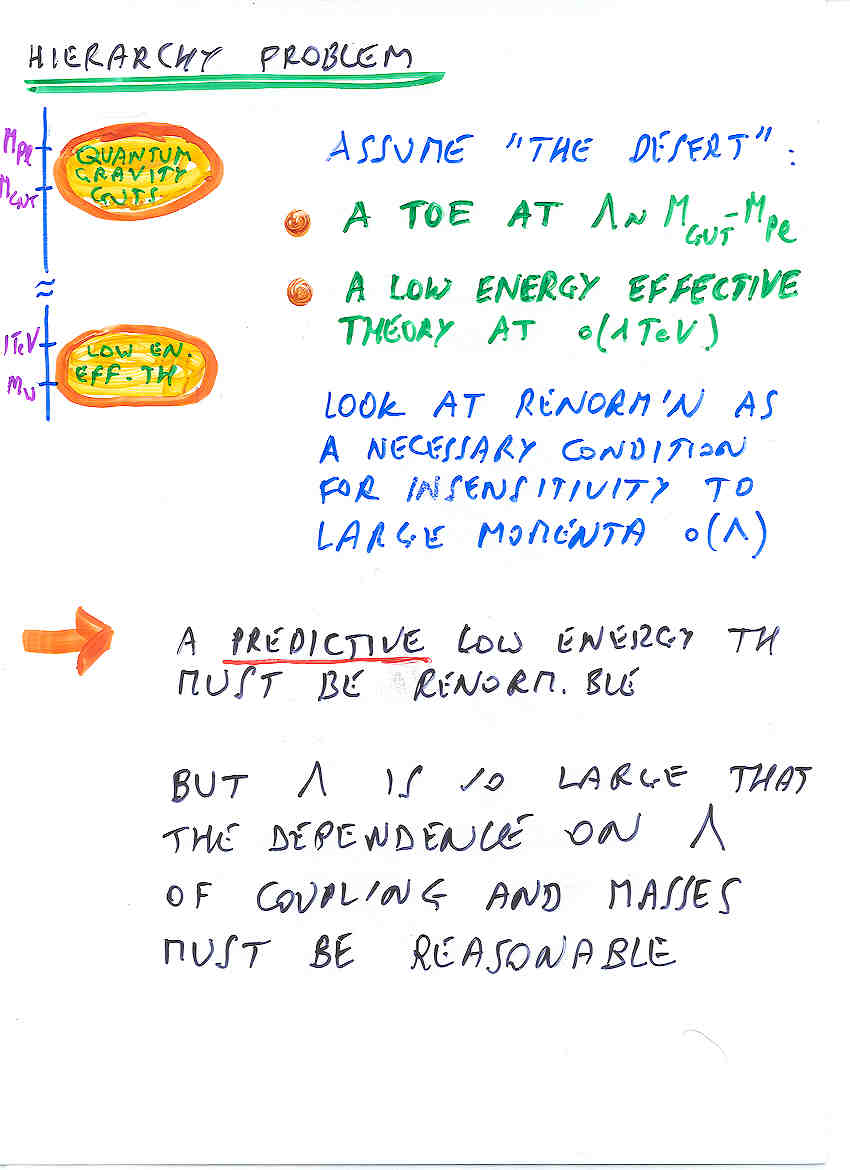 HIERARCHY PROBLEM
M_Pl
QUANTUM
GRAVITY
GUTS
M_GUT
≈
1TeV
LOW EN.
EFF. TH
M_W
ASSUME "THE DESERT":
A TOE AT Λ ~ M_GUT - M_Pl
A LOW ENERGY EFFECTIVE
THEORY AT o(1TeV)
LOOK AT RENORM'N AS
A NECESSARY CONDITION
FOR INSENSITIVITY TO
LARGE MOMENTA o(Λ)
A PREDICTIVE LOW ENERGY TH
MUST BE RENORM.BLE
BUT Λ IS SO LARGE THAT
THE DEPENDENCE ON Λ
OF COUPLING AND MASSES
MUST BE REASONABLE